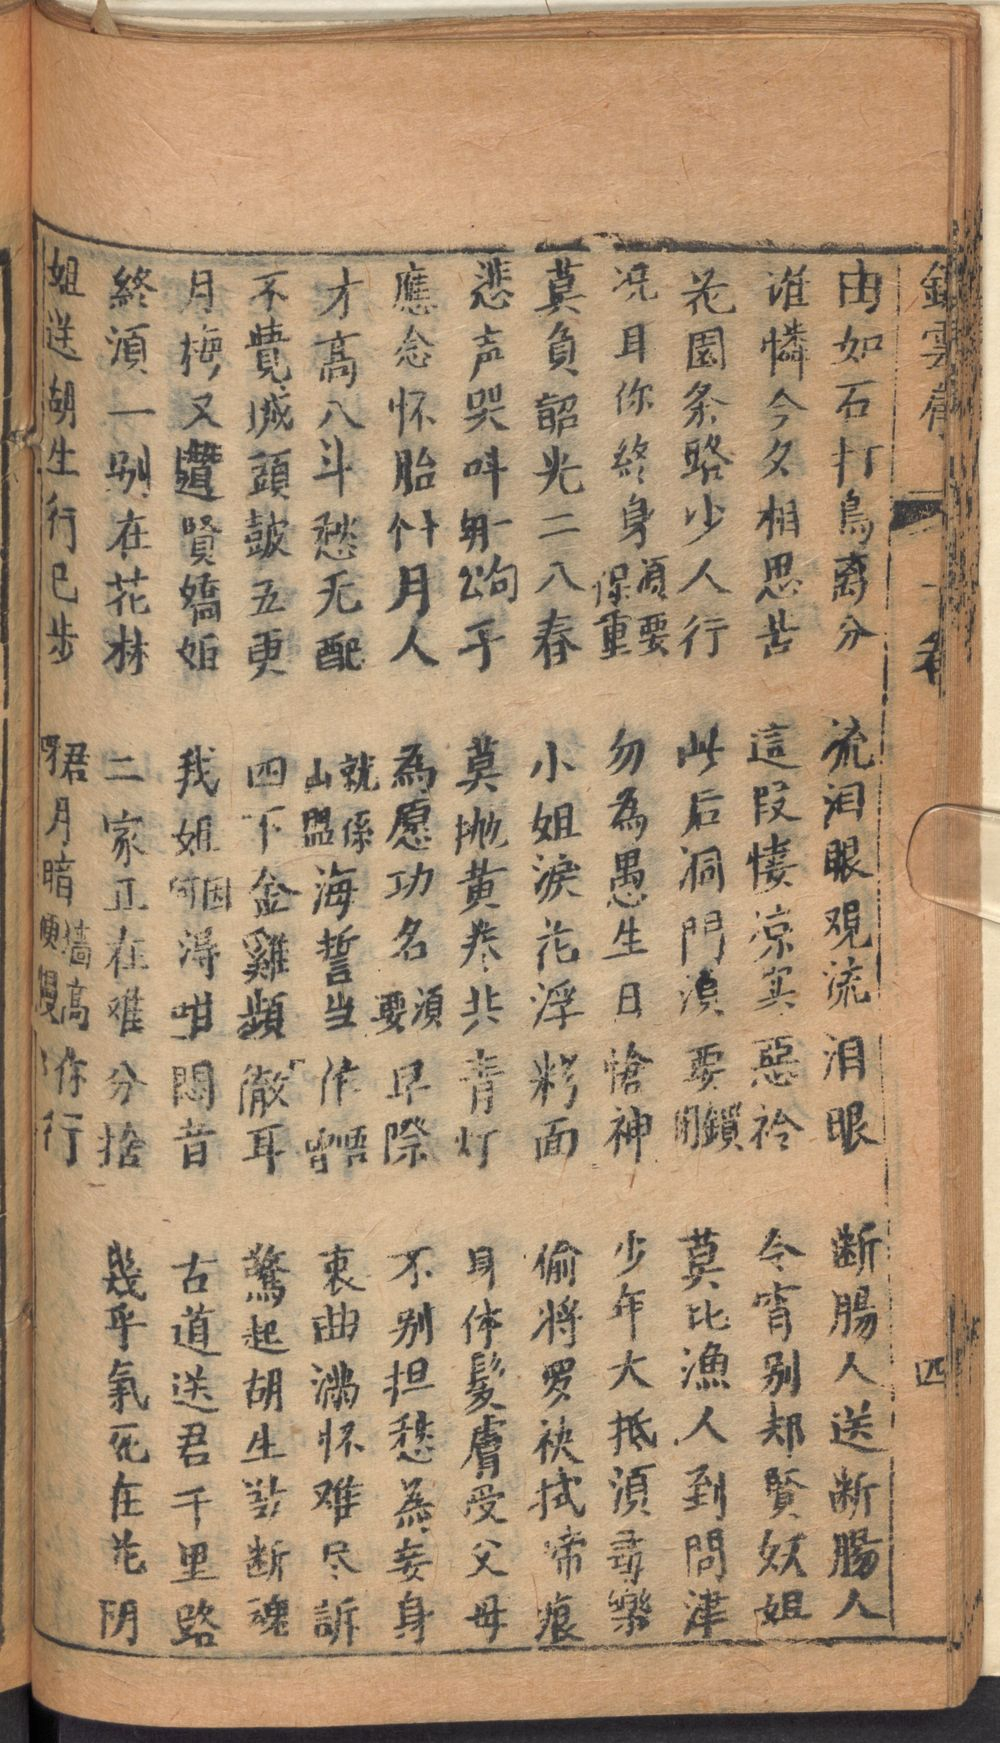 由如石打鳥离分　流泪眼观流泪眼　断腸人送断腸人
谁憐今夕相思苦　這段悽凉真惡衿　令宵别却賢妖姐
花園条路少人行　此后洞門湏要開鎖　莫比漁人到問津
况耳你終身須要保重　勿為愚生日愴神　少年大抵湏尋樂
莫負韶光二八春　小姐淚花浮粉面　偷将罗袂拭啼痕
悲声哭呌胡公子　莫抛黄卷共青灯　身体髮膚受父母
應念怀胎十個月人　為愿功名須要早際　不别担愁為妾身
才高八斗愁无配　就係山盟海誓当作唔曾　衷曲满怀难尽訴
不覺城頭皷五更　四下金雞頻徹耳　驚起胡生欲断魂
月梅又讚賢嬌姐　我姐因何得咁悶音　古道送君千里路
終湏一别在花林　二家正在难分捨　幾乎氣死在花阴
姐送胡生行已步　君呀月暗墙高須慢你行
四